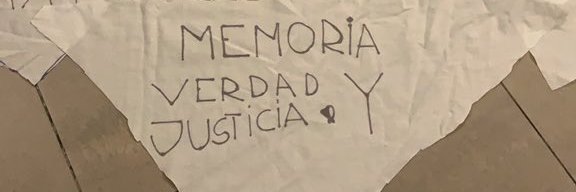 MEMORIA
VERDAD Y
JUSTICIA